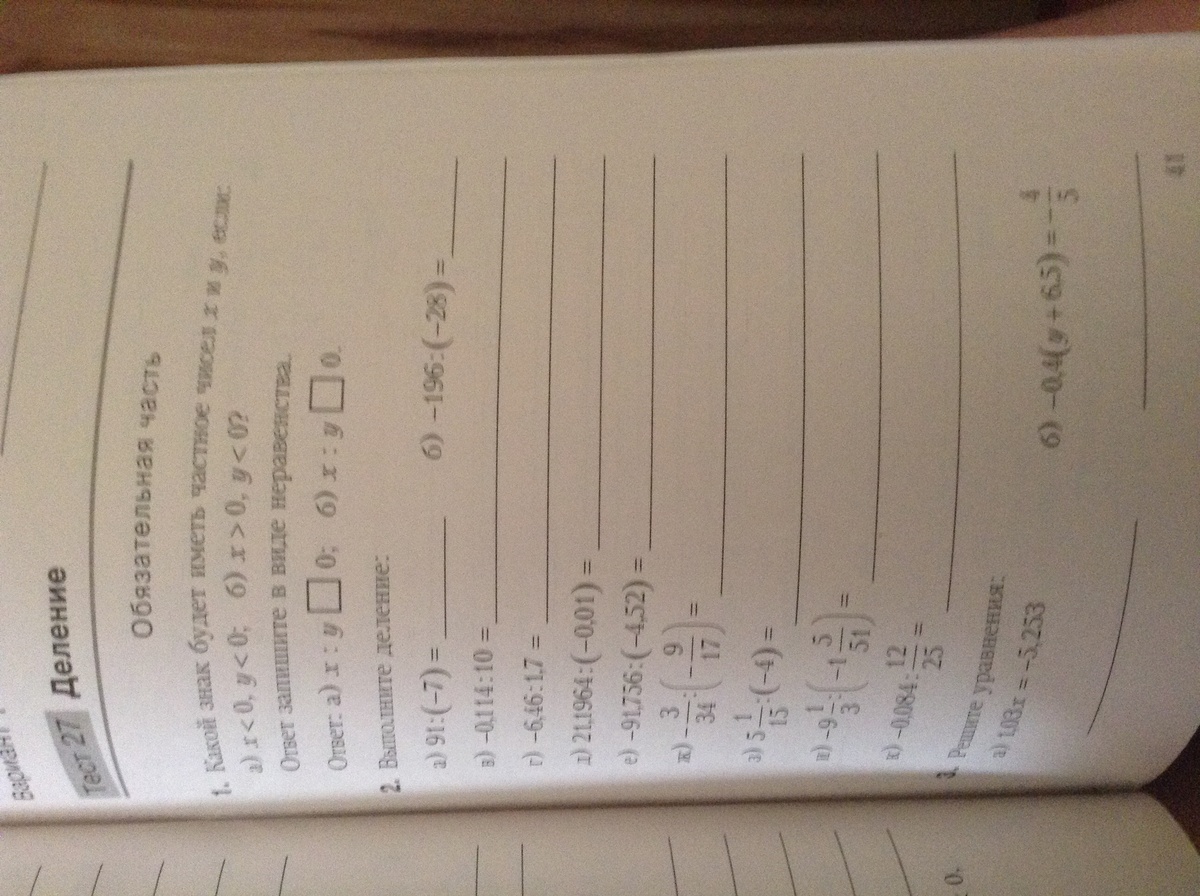 Вариант
Тест 27 Деление
Обязательная часть
1. Какой знак будет иметь частное чисел x и y, если:
а) x < 0, y < 0; б) x > 0, y < 0?
Ответ запишите в виде неравенства.
Ответ: а) x : y □ 0; б) x : y □ 0.
2. Выполните деление:
а) 91 : (−7) = ____ б) −196 : (−28) = ____
в) −0,114 : 10 = ____
г) −6,46 : 1,7 = ____
д) 21,1964 : (−0,01) = ____
е) −91,756 : (−4,52) = ____
ж) −3/34 : (−9/17) = ____
з) 5 1/15 : (−4) = ____
и) −9 1/3 : (−1 5/51) = ____
к) −0,084 : 12/25 = ____
3. Решите уравнения:
а) 1,03x = −5,253 б) −0,4(y + 6,5) = −4/5
41
0.